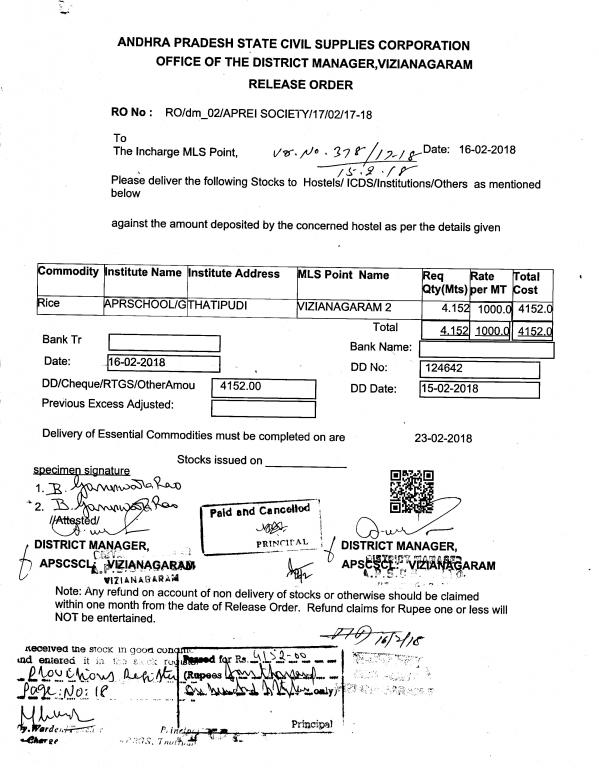 ANDHRA PRADESH STATE CIVIL SUPPLIES CORPORATION
OFFICE OF THE DISTRICT MANAGER,VIZIANAGARAM
RELEASE ORDER
RO No : RO/dm_02/APREI SOCIETY/17/02/17-18
To
The Incharge MLS Point, Vr. No. 378/17-18 Date: 16-02-2018
15.2.18
Please deliver the following Stocks to Hostels/ ICDS/Institutions/Others as mentioned
below
against the amount deposited by the concerned hostel as per the details given
Commodity Institute Name Institute Address MLS Point Name Req Qty(Mts) Rate per MT Total Cost
Rice APRSCHOOL/G THATIPUDI VIZIANAGARAM 2 4.152 1000.0 4152.0
Total 4.152 1000.0 4152.0
Bank Tr Bank Name:
Date: 16-02-2018 DD No: 124642
DD/Cheque/RTGS/OtherAmou 4152.00 DD Date: 15-02-2018
Previous Excess Adjusted:
Delivery of Essential Commodities must be completed on are 23-02-2018
Stocks issued on
specimen signature
1.
2.
//Attested/
Paid and Cancelled
PRINCIPAL
DISTRICT MANAGER, DISTRICT MANAGER,
APSCSCL, VIZIANAGARAM APSCSCL, VIZIANAGARAM
VIZIANAGARAM
Note: Any refund on account of non delivery of stocks or otherwise should be claimed
within one month from the date of Release Order. Refund claims for Rupee one or less will
NOT be entertained.
16/2/18
Received the stock in good
and entered it in the stock
Provisions Register
Page: No: 18
Passed for Rs. 4152-00
(Rupees four thousand
one hundred fifty two only)
Principal
Dy. Warden
Charge